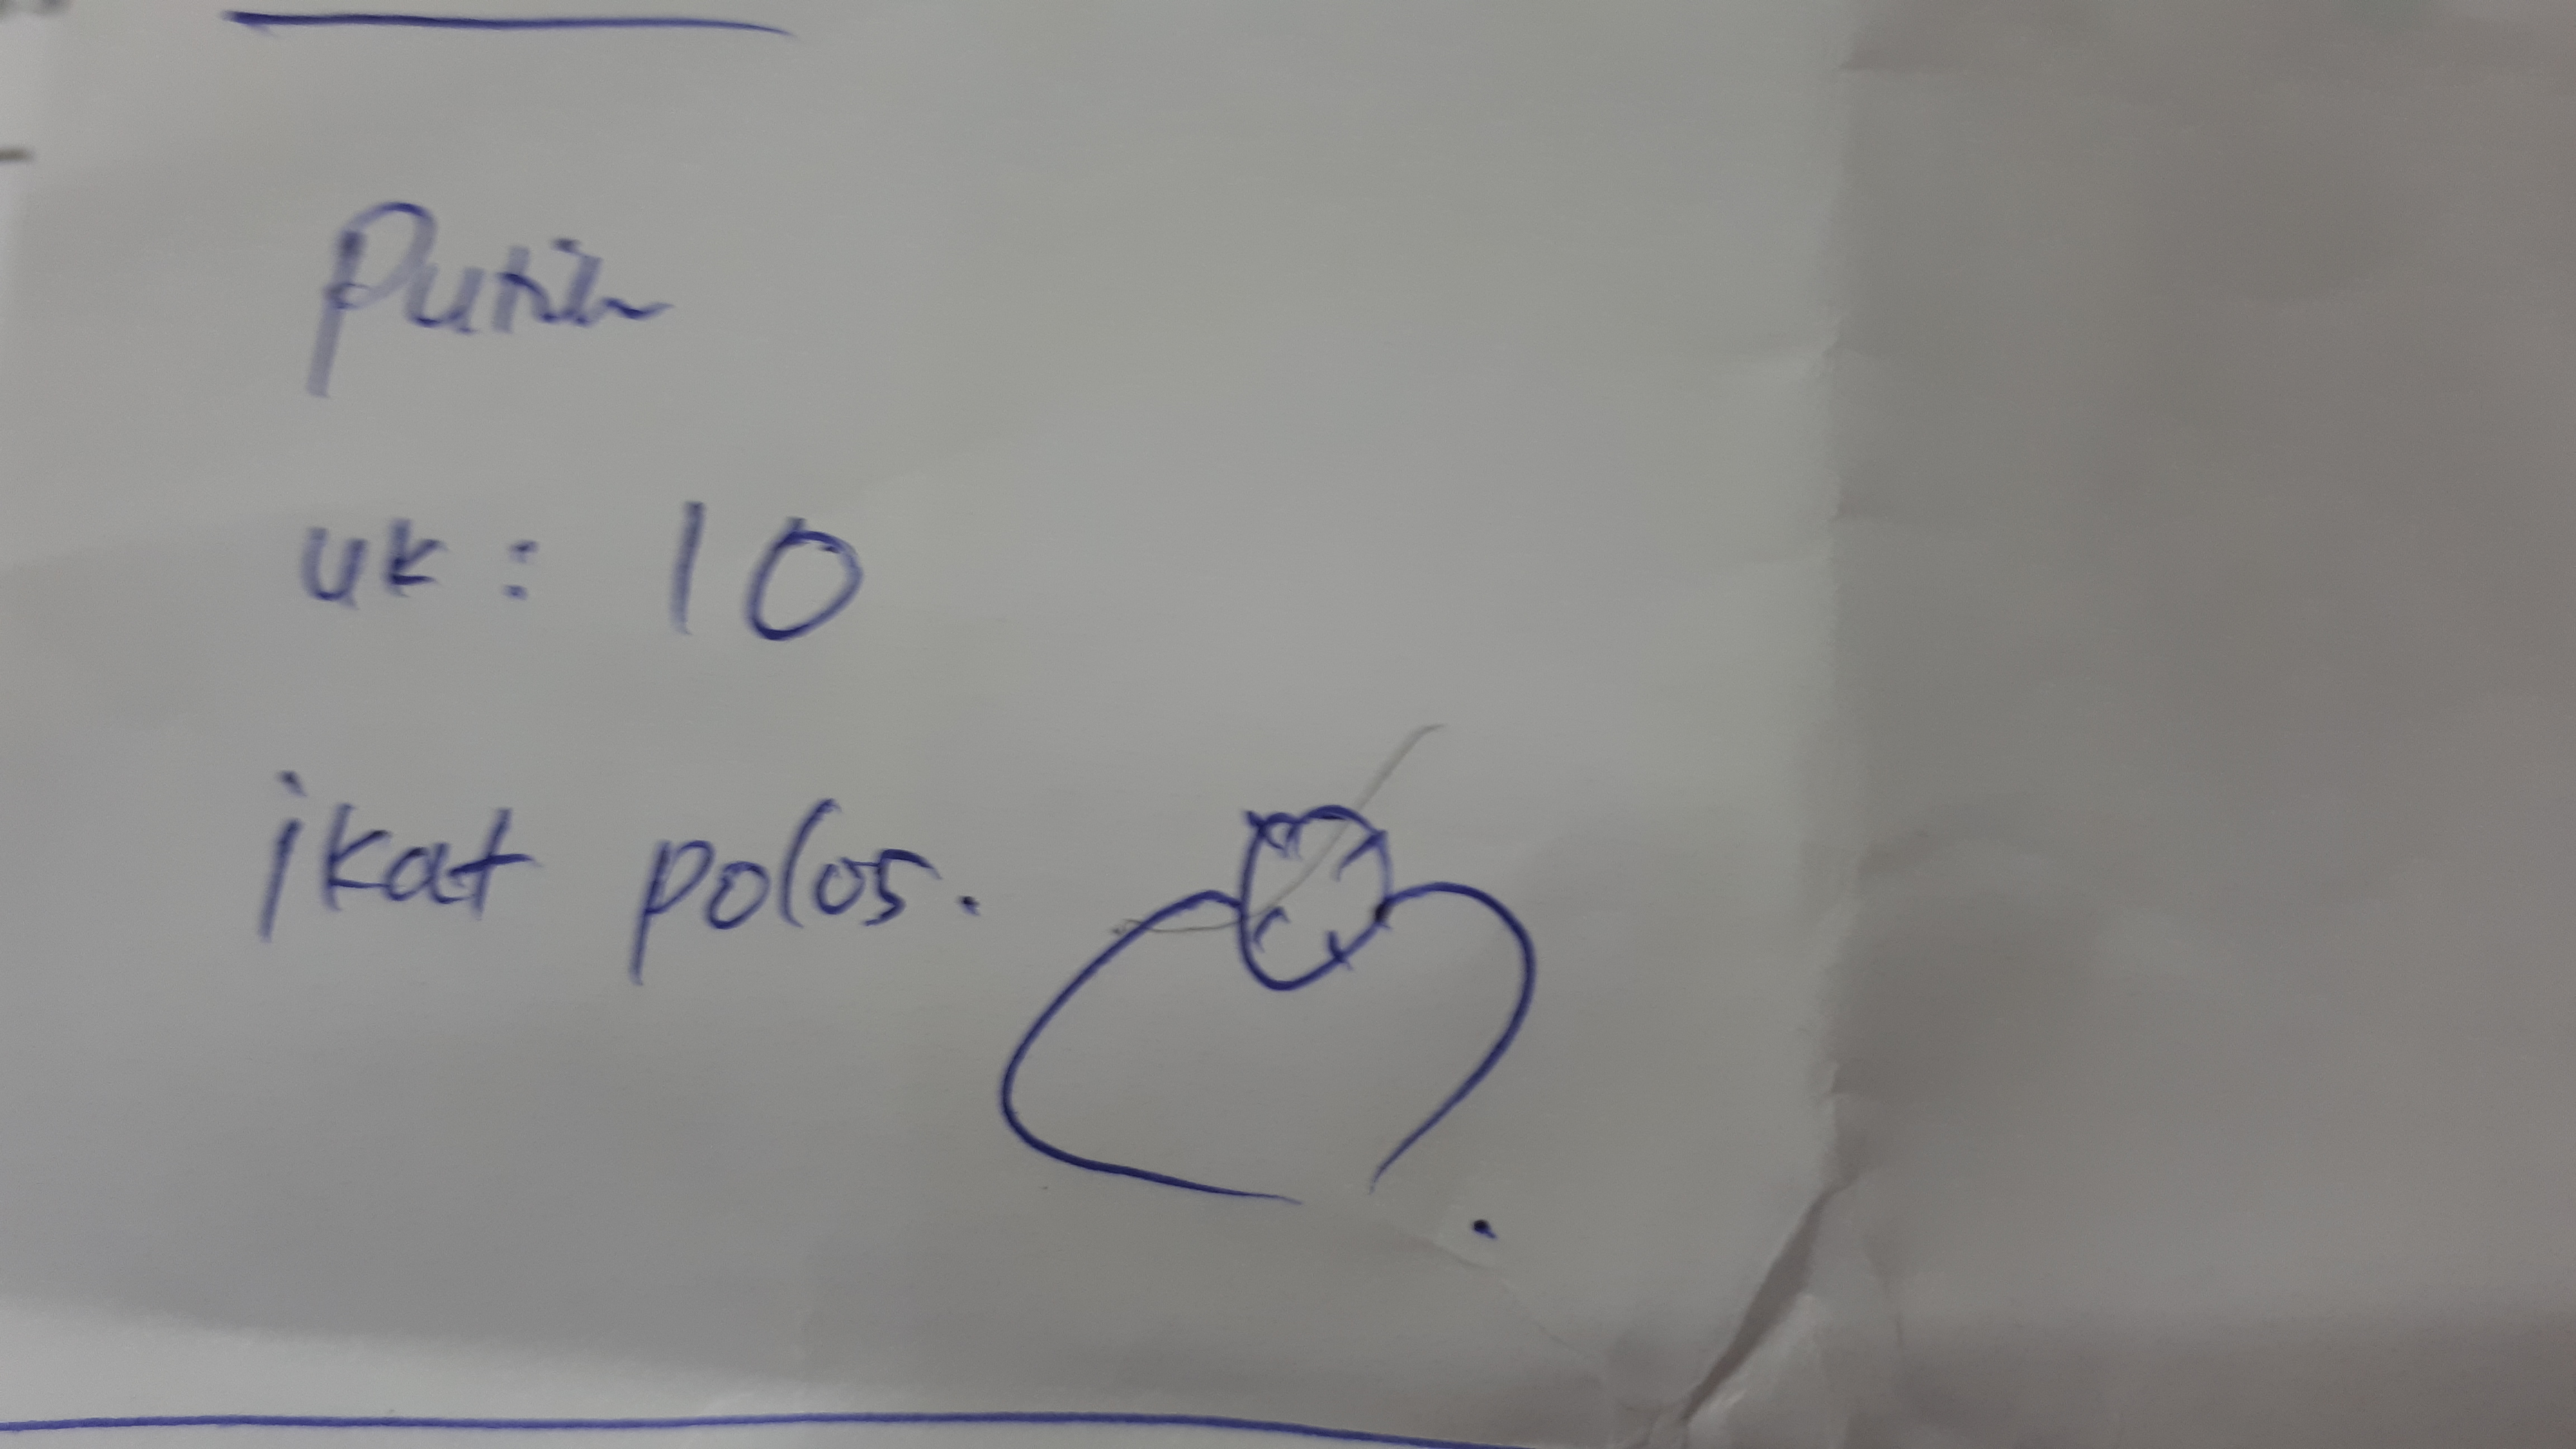 Putih
uk : 10
ikat polos.